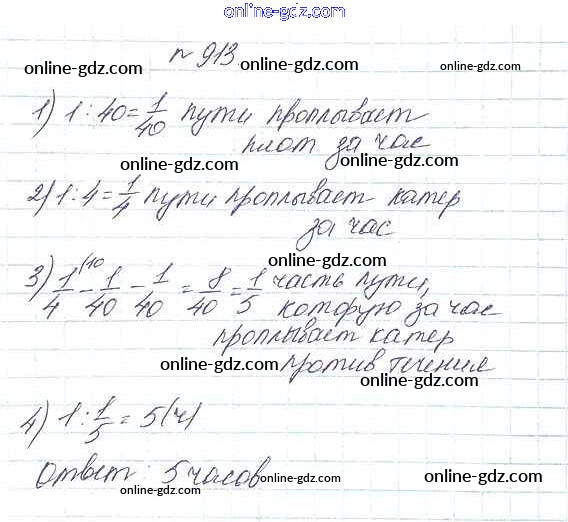 online-gdz.com
№ 913.
online-gdz.com online-gdz.com
1) 1 : 40 = 1/40 пути проплывает
плот за час
online-gdz.com online-gdz.com
2) 1 : 4 = 1/4 пути проплывает катер
за час
online-gdz.com
3) 1/4 \10 - 1/40 - 1/40 = 8/40 = 1/5 часть пути,
которую за час
проплывает катер
online-gdz.com против течения
online-gdz.com
4) 1 : 1/5 = 5 (ч)
Ответ: 5 часов
online-gdz.com online-gdz.com online-gdz.com